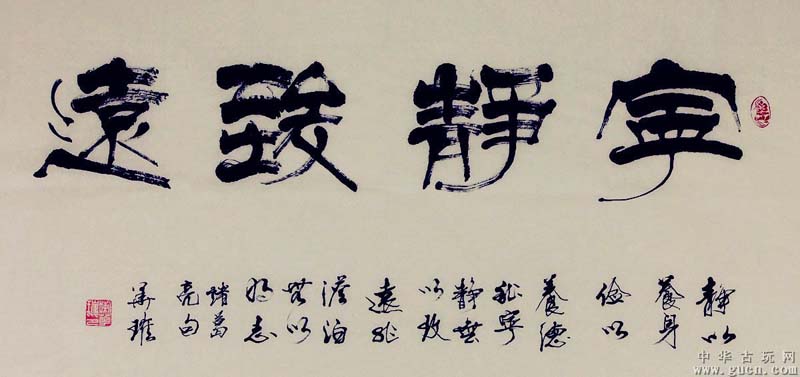 寧靜致遠
靜以
養身
儉以
養德
非寧
靜無
以致
遠非
澹泊
無以
明志
諸葛
亮句
中华古玩网
www.gucn.com